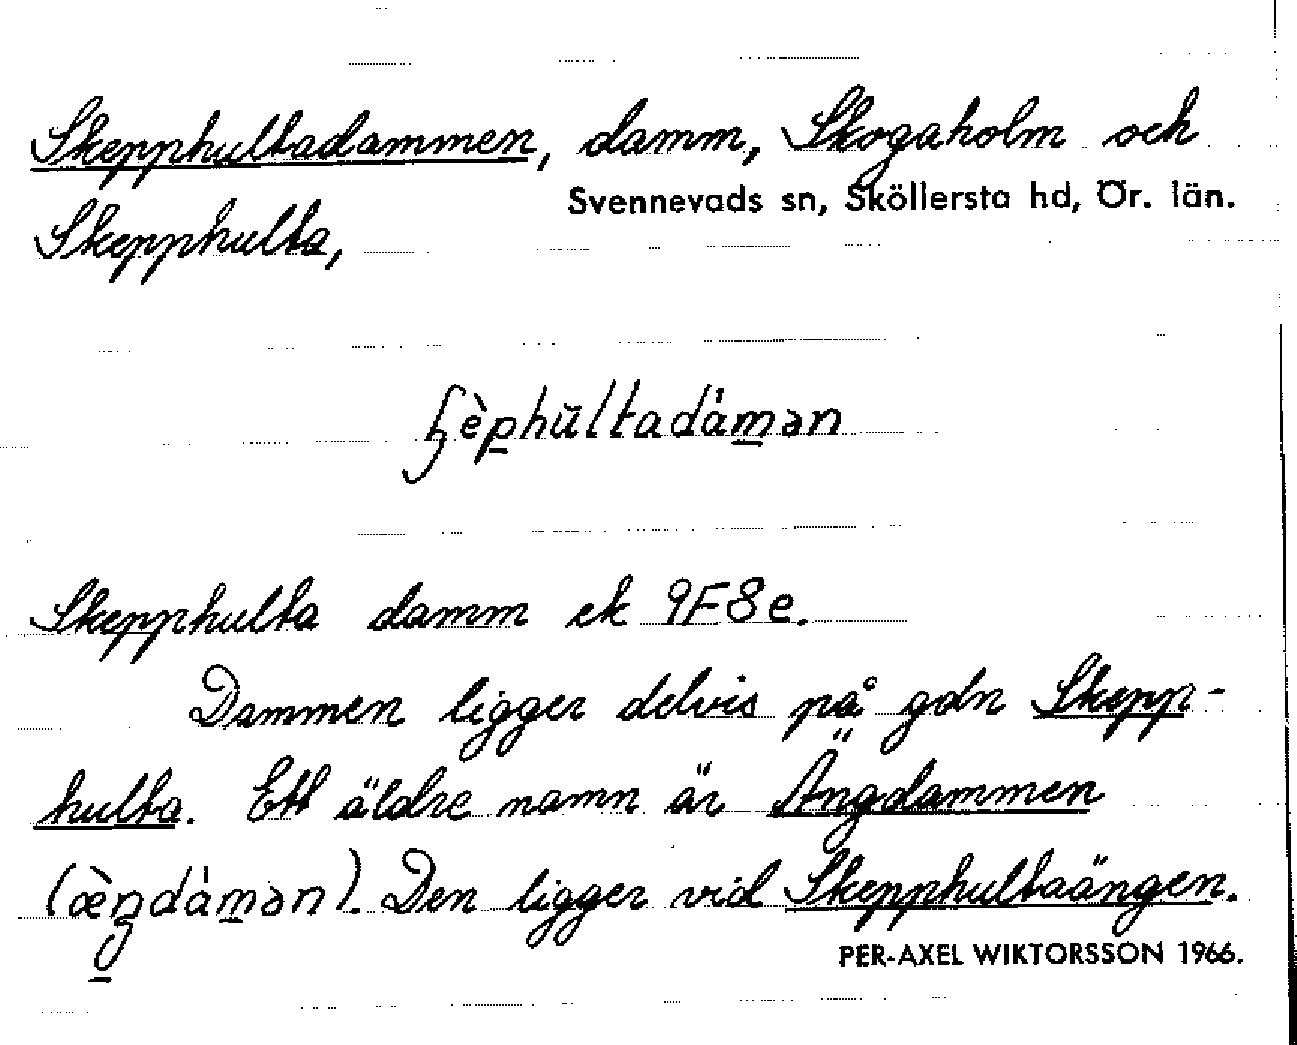 Skepphultadammen, damm, Skogaholm och
Svennevads sn, Sköllersta hd, Ör. län.
Skepphulta,
ʃèphŭltadȧmən
Skepphulta damm ek 9F8e.
Dammen ligger delvis på gdn Skepp-
hulta. Ett äldre namn är Ängdammen
(æ̀ŋdȧmən). Den ligger vid Skepphultaängen.
PER-AXEL WIKTORSSON 1966.